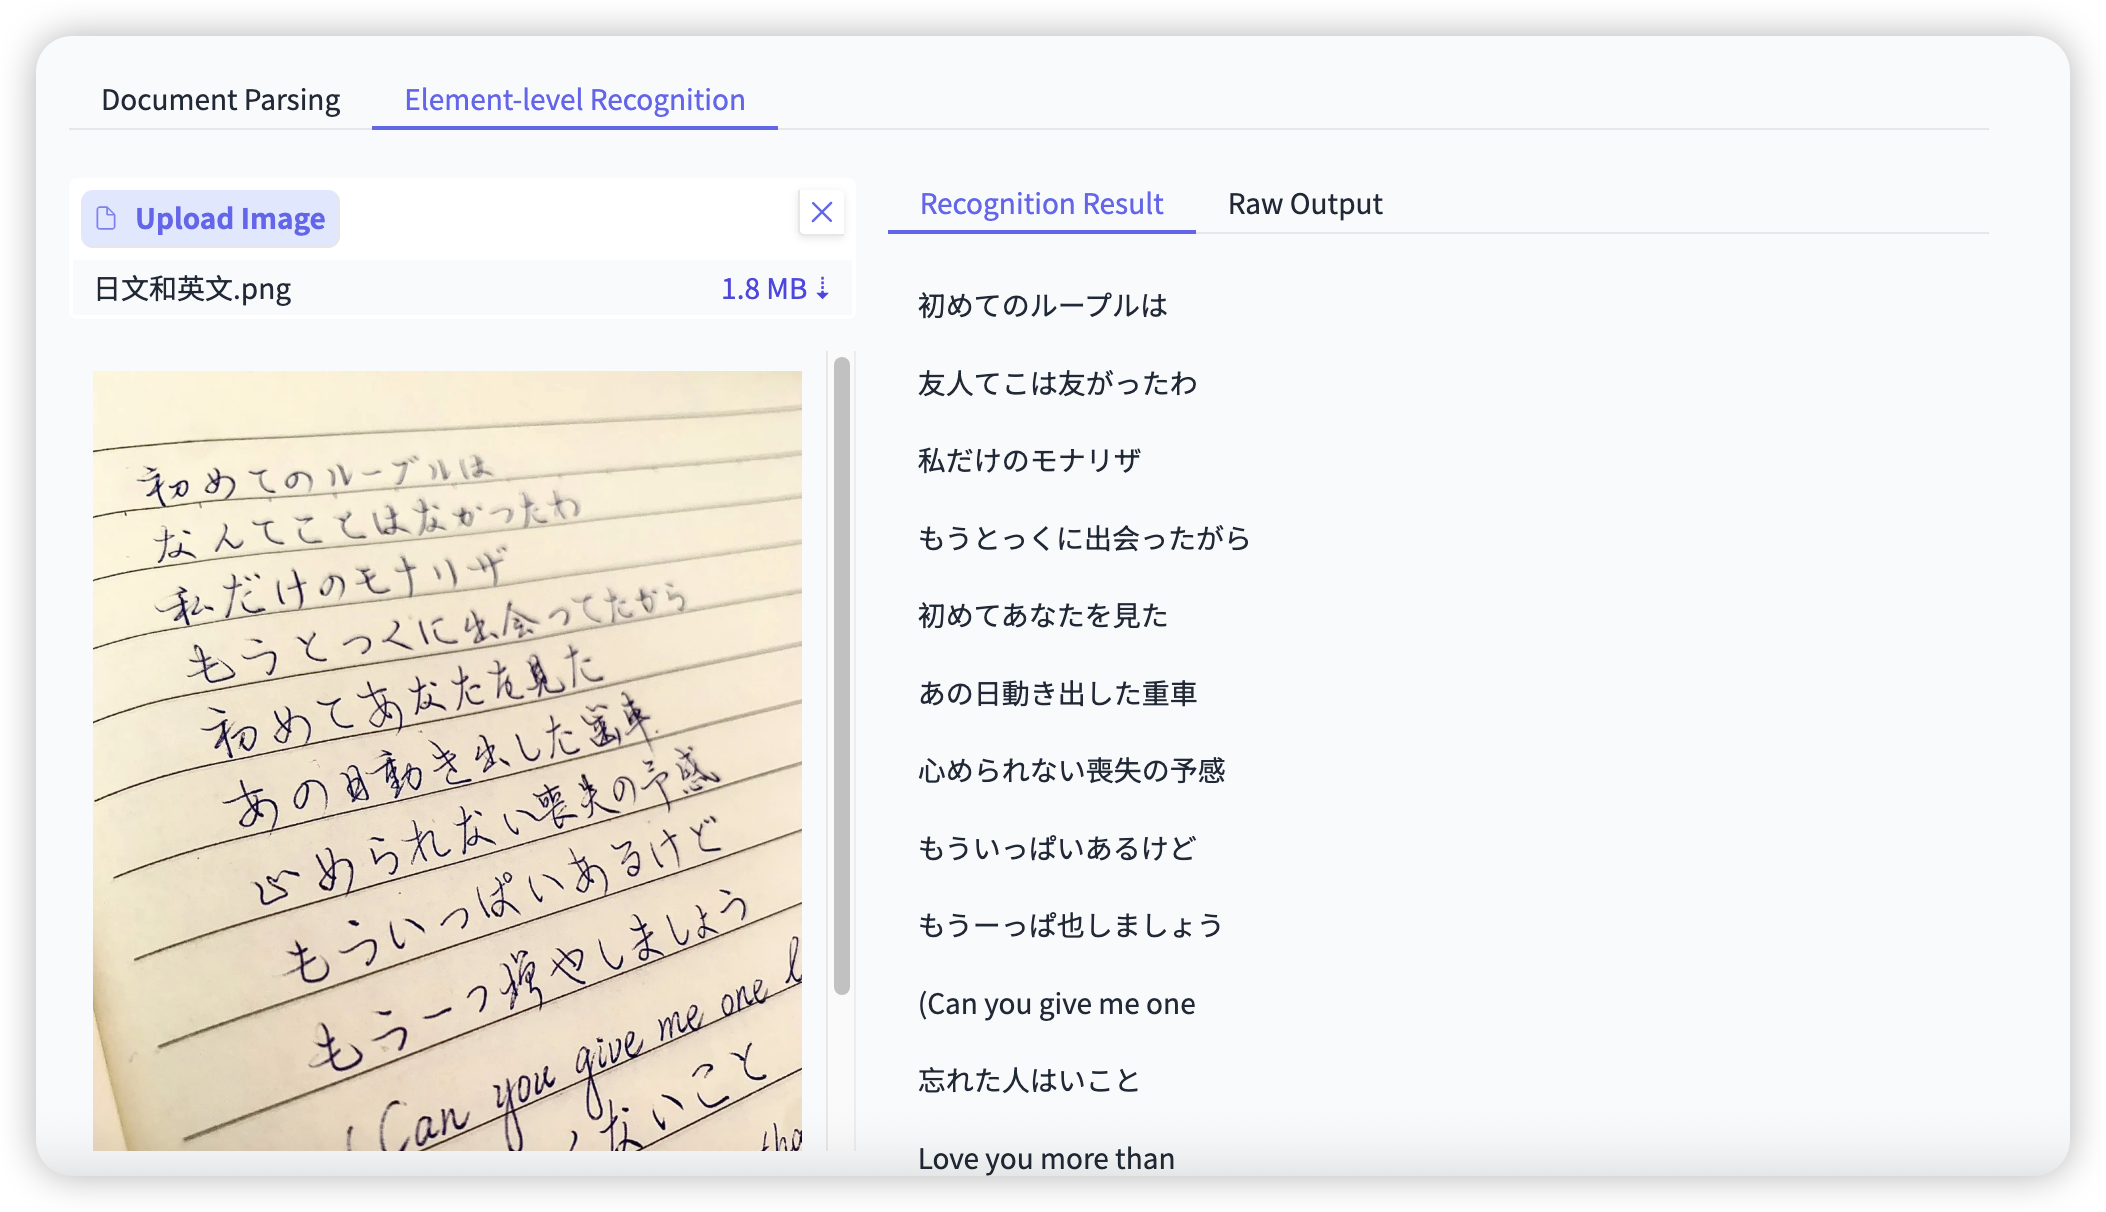 Document Parsing
Element-level Recognition
Upload Image
日文和英文.png
1.8 MB ⇣
初めてのルーブルは
なんてことはなかったわ
私だけのモナリザ
もうとっくに出会ってたから
初めてあなたを見た
あの日動き出した歯車
止められない喪失の予感
もういっぱいあるけど
もう一つ増やしましょう
(Can you give me one l
くないこと
tha
Recognition Result
Raw Output
初めてのループルは
友人てこは友がったわ
私だけのモナリザ
もうとっくに出会ったがら
初めてあなたを見た
あの日動き出した重車
心められない喪失の予感
もういっぱいあるけど
もうーっぱ也しましょう
(Can you give me one
忘れた人はいこと
Love you more than